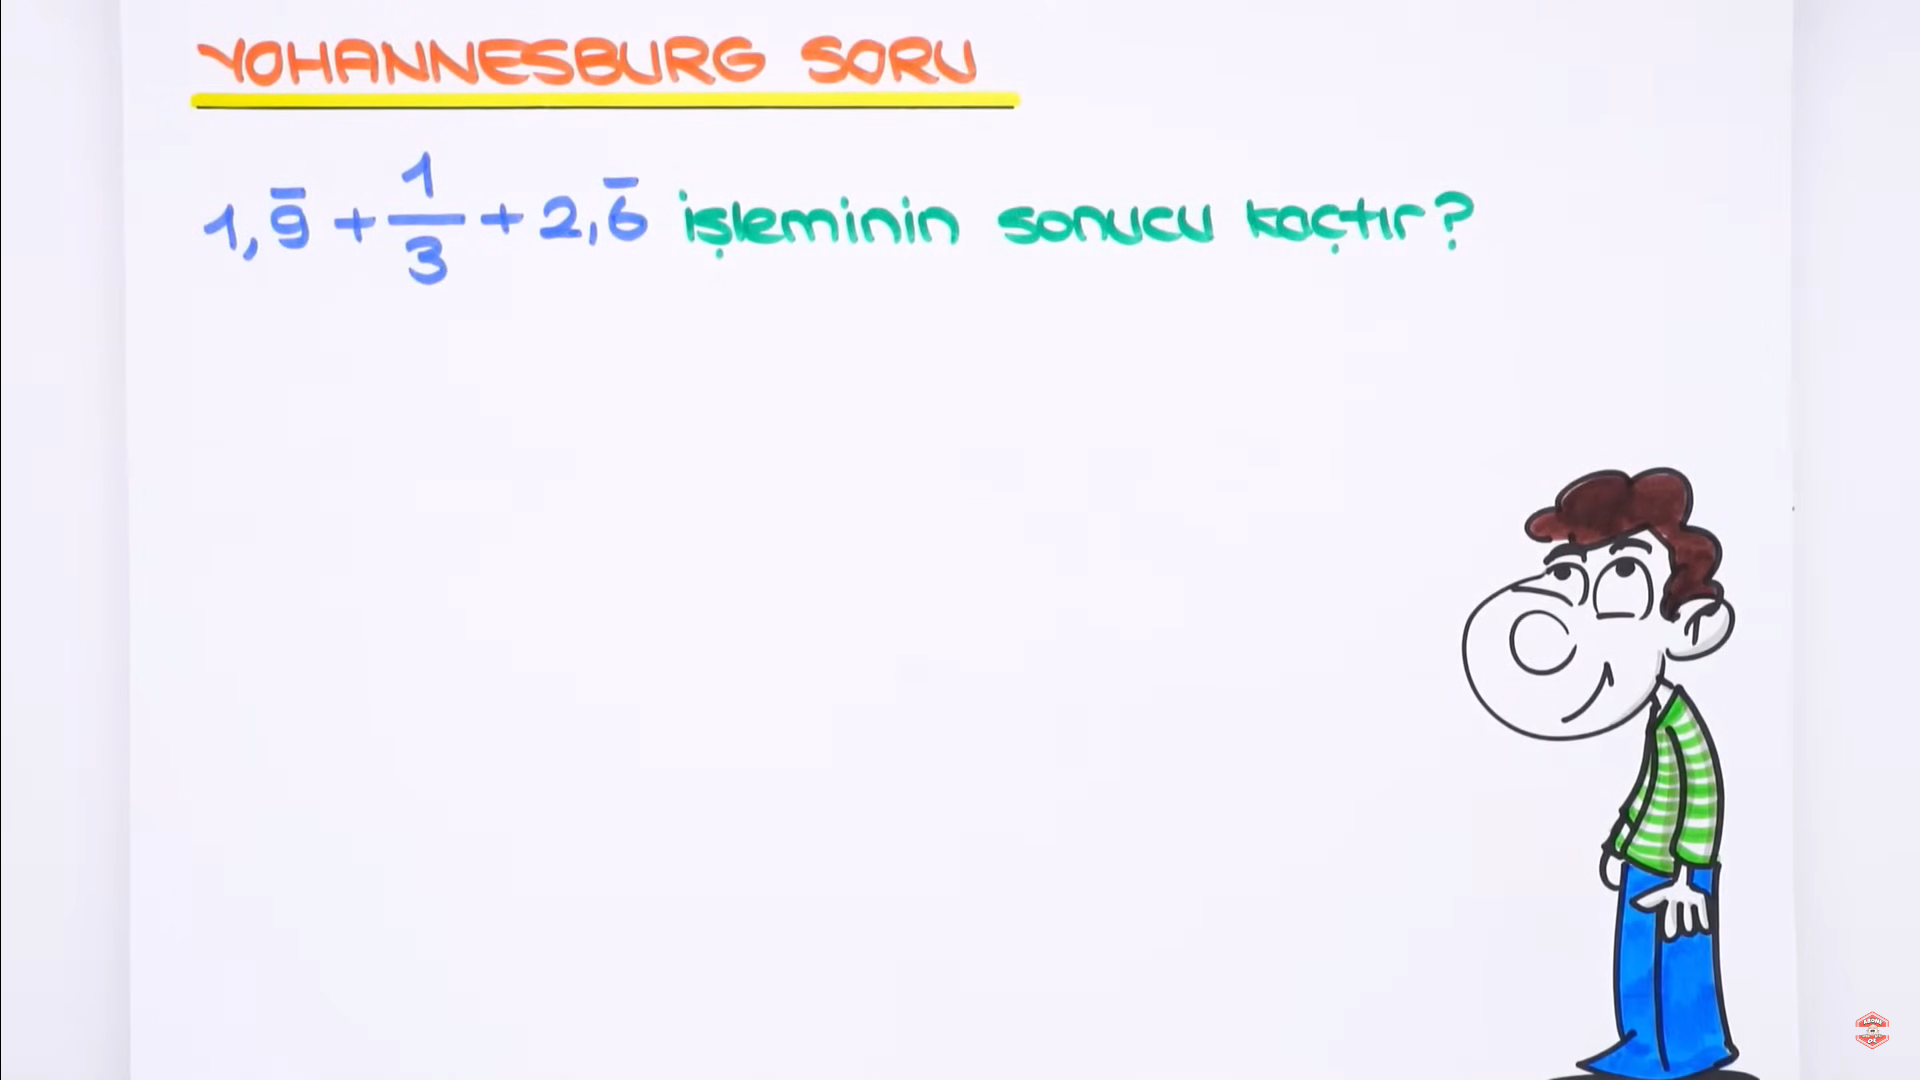 YOHANNESBURG SORU
1,9̅ + 1/3 + 2,6̅ işleminin sonucu kaçtır?
ABONE
OL